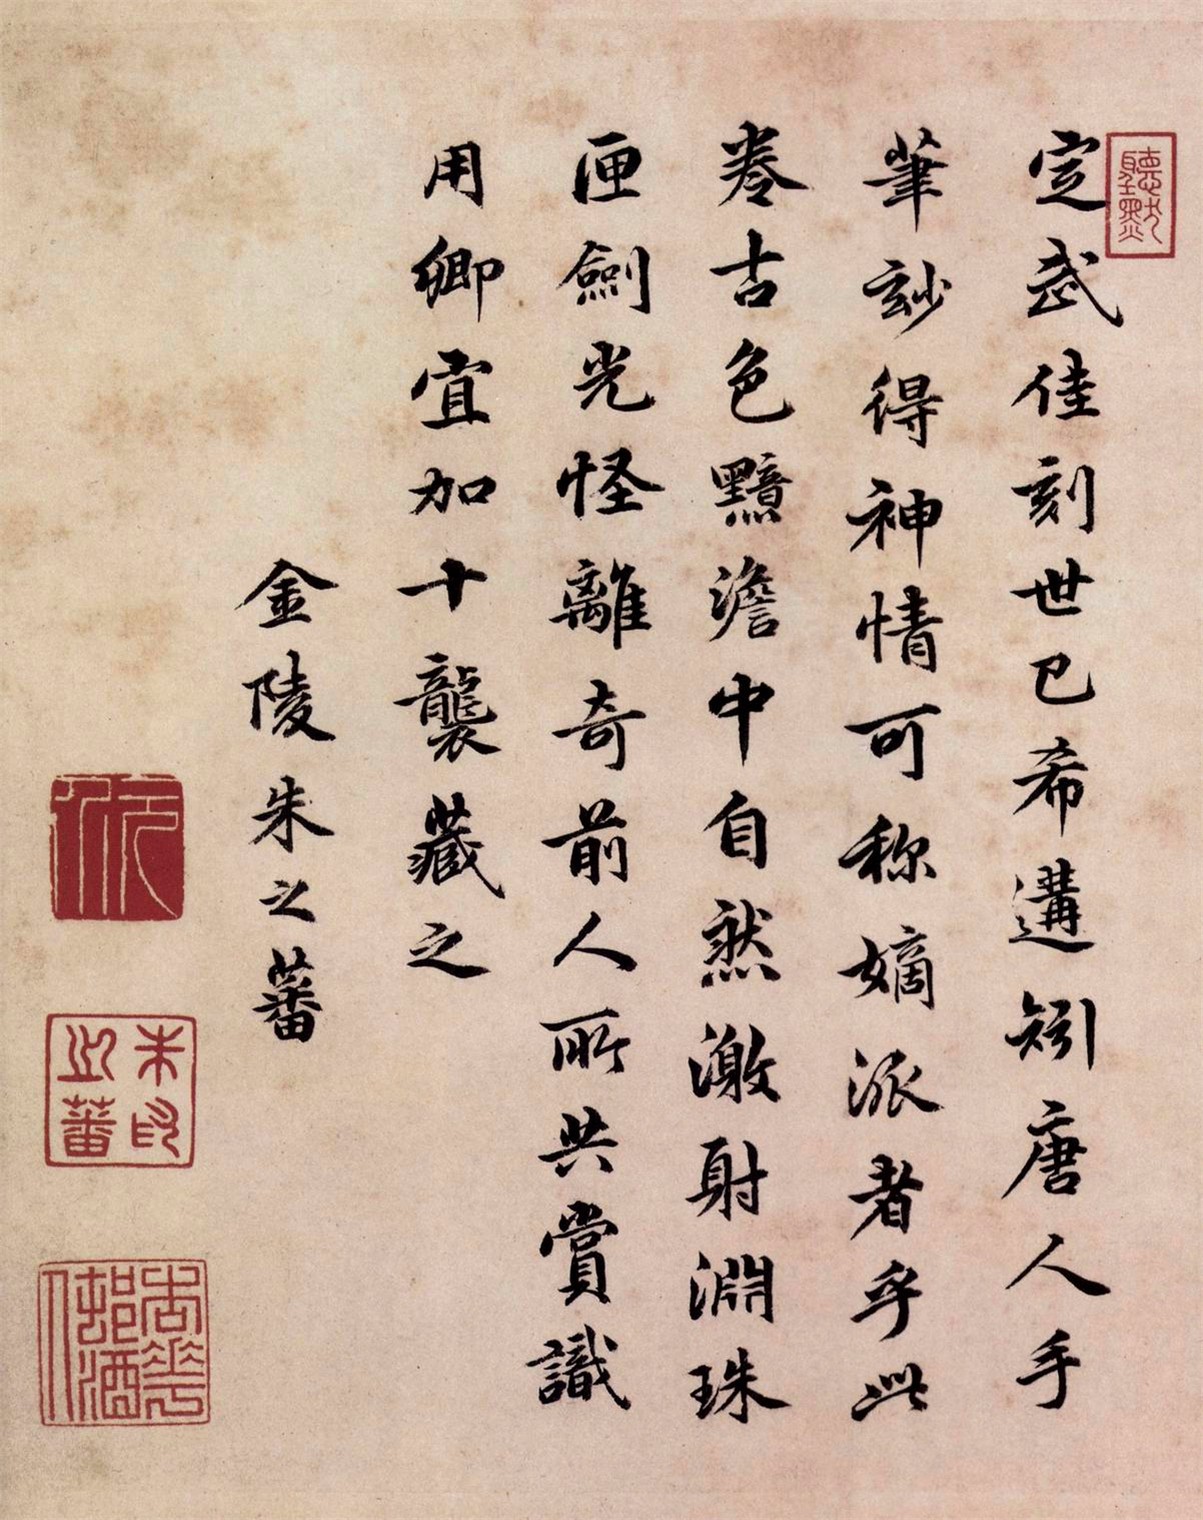 聽默
定武佳刻世已希遘矧唐人手
筆玅得神情可称嫡派者乎此
卷古色黯澹中自然激射淵珠
匣劍光怪離奇前人所共賞識
用卿宜加十襲藏之
金陵朱之蕃
朱之蕃印